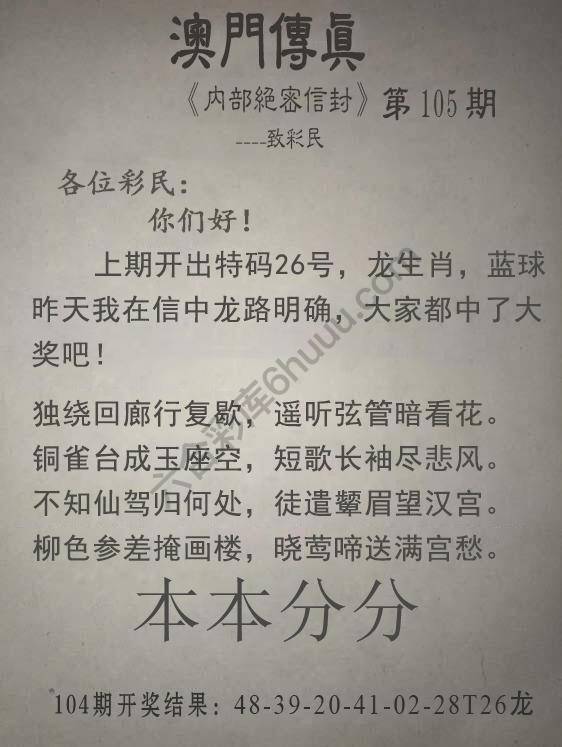 澳門傳眞
《内部絕密信封》第105期
----致彩民
各位彩民：
你们好！
上期开出特码26号，龙生肖，蓝球
昨天我在信中龙路明确，大家都中了大
奖吧！
独绕回廊行复歇，遥听弦管暗看花。
铜雀台成玉座空，短歌长袖尽悲风。
不知仙驾归何处，徒遣颦眉望汉宫。
柳色参差掩画楼，晓莺啼送满宫愁。
本本分分
104期开奖结果：48-39-20-41-02-28T26龙
六合彩库6huuu.com